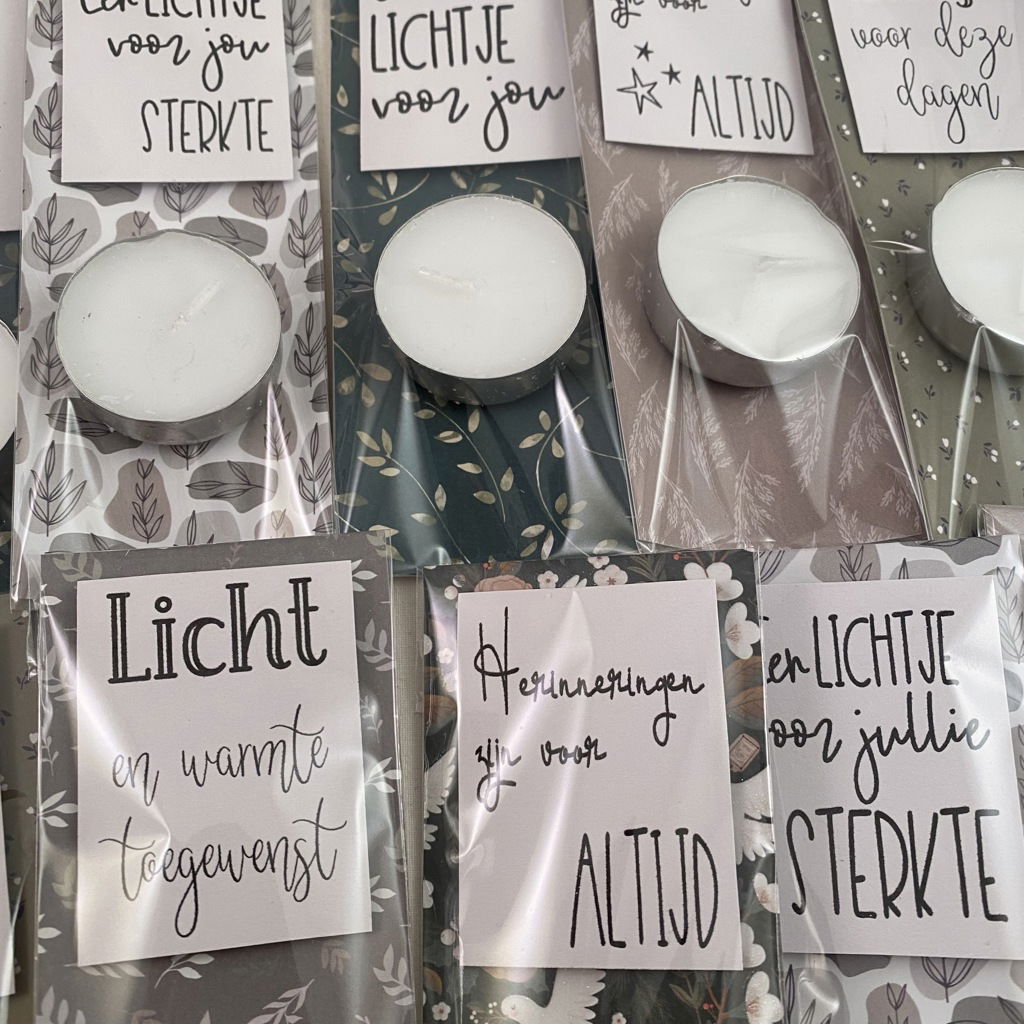 Een LICHTJE
voor jou
STERKTE
LICHTJE
voor jou
zijn voor
ALTIJD
voor deze
dagen
Licht
en warmte
toegewenst
Herinneringen
zijn voor
ALTIJD
Een LICHTJE
voor jullie
STERKTE